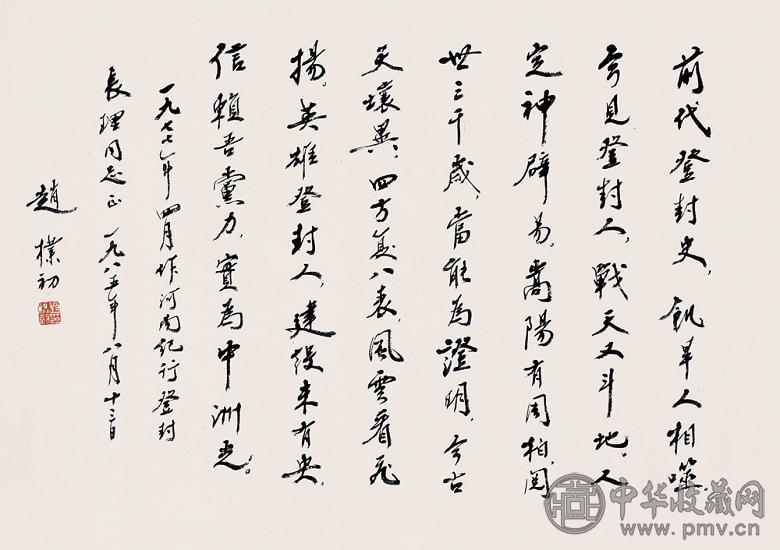 前代登封史，飢旱人相噬。
今見登封人，戰天又斗地。人
定神辟易。嵩陽有周柏，閱
世三千歲，當能為證明，今古
天壤異。四方八表，風雲看飛
揚。英雄登封人，建設未有央。
信賴吾黨力，實為中洲光。
一九七七年四月作河南紀行登封
長理同志正 一九八五年八月十三日
趙樸初
中华收藏网
www.pmv.cn